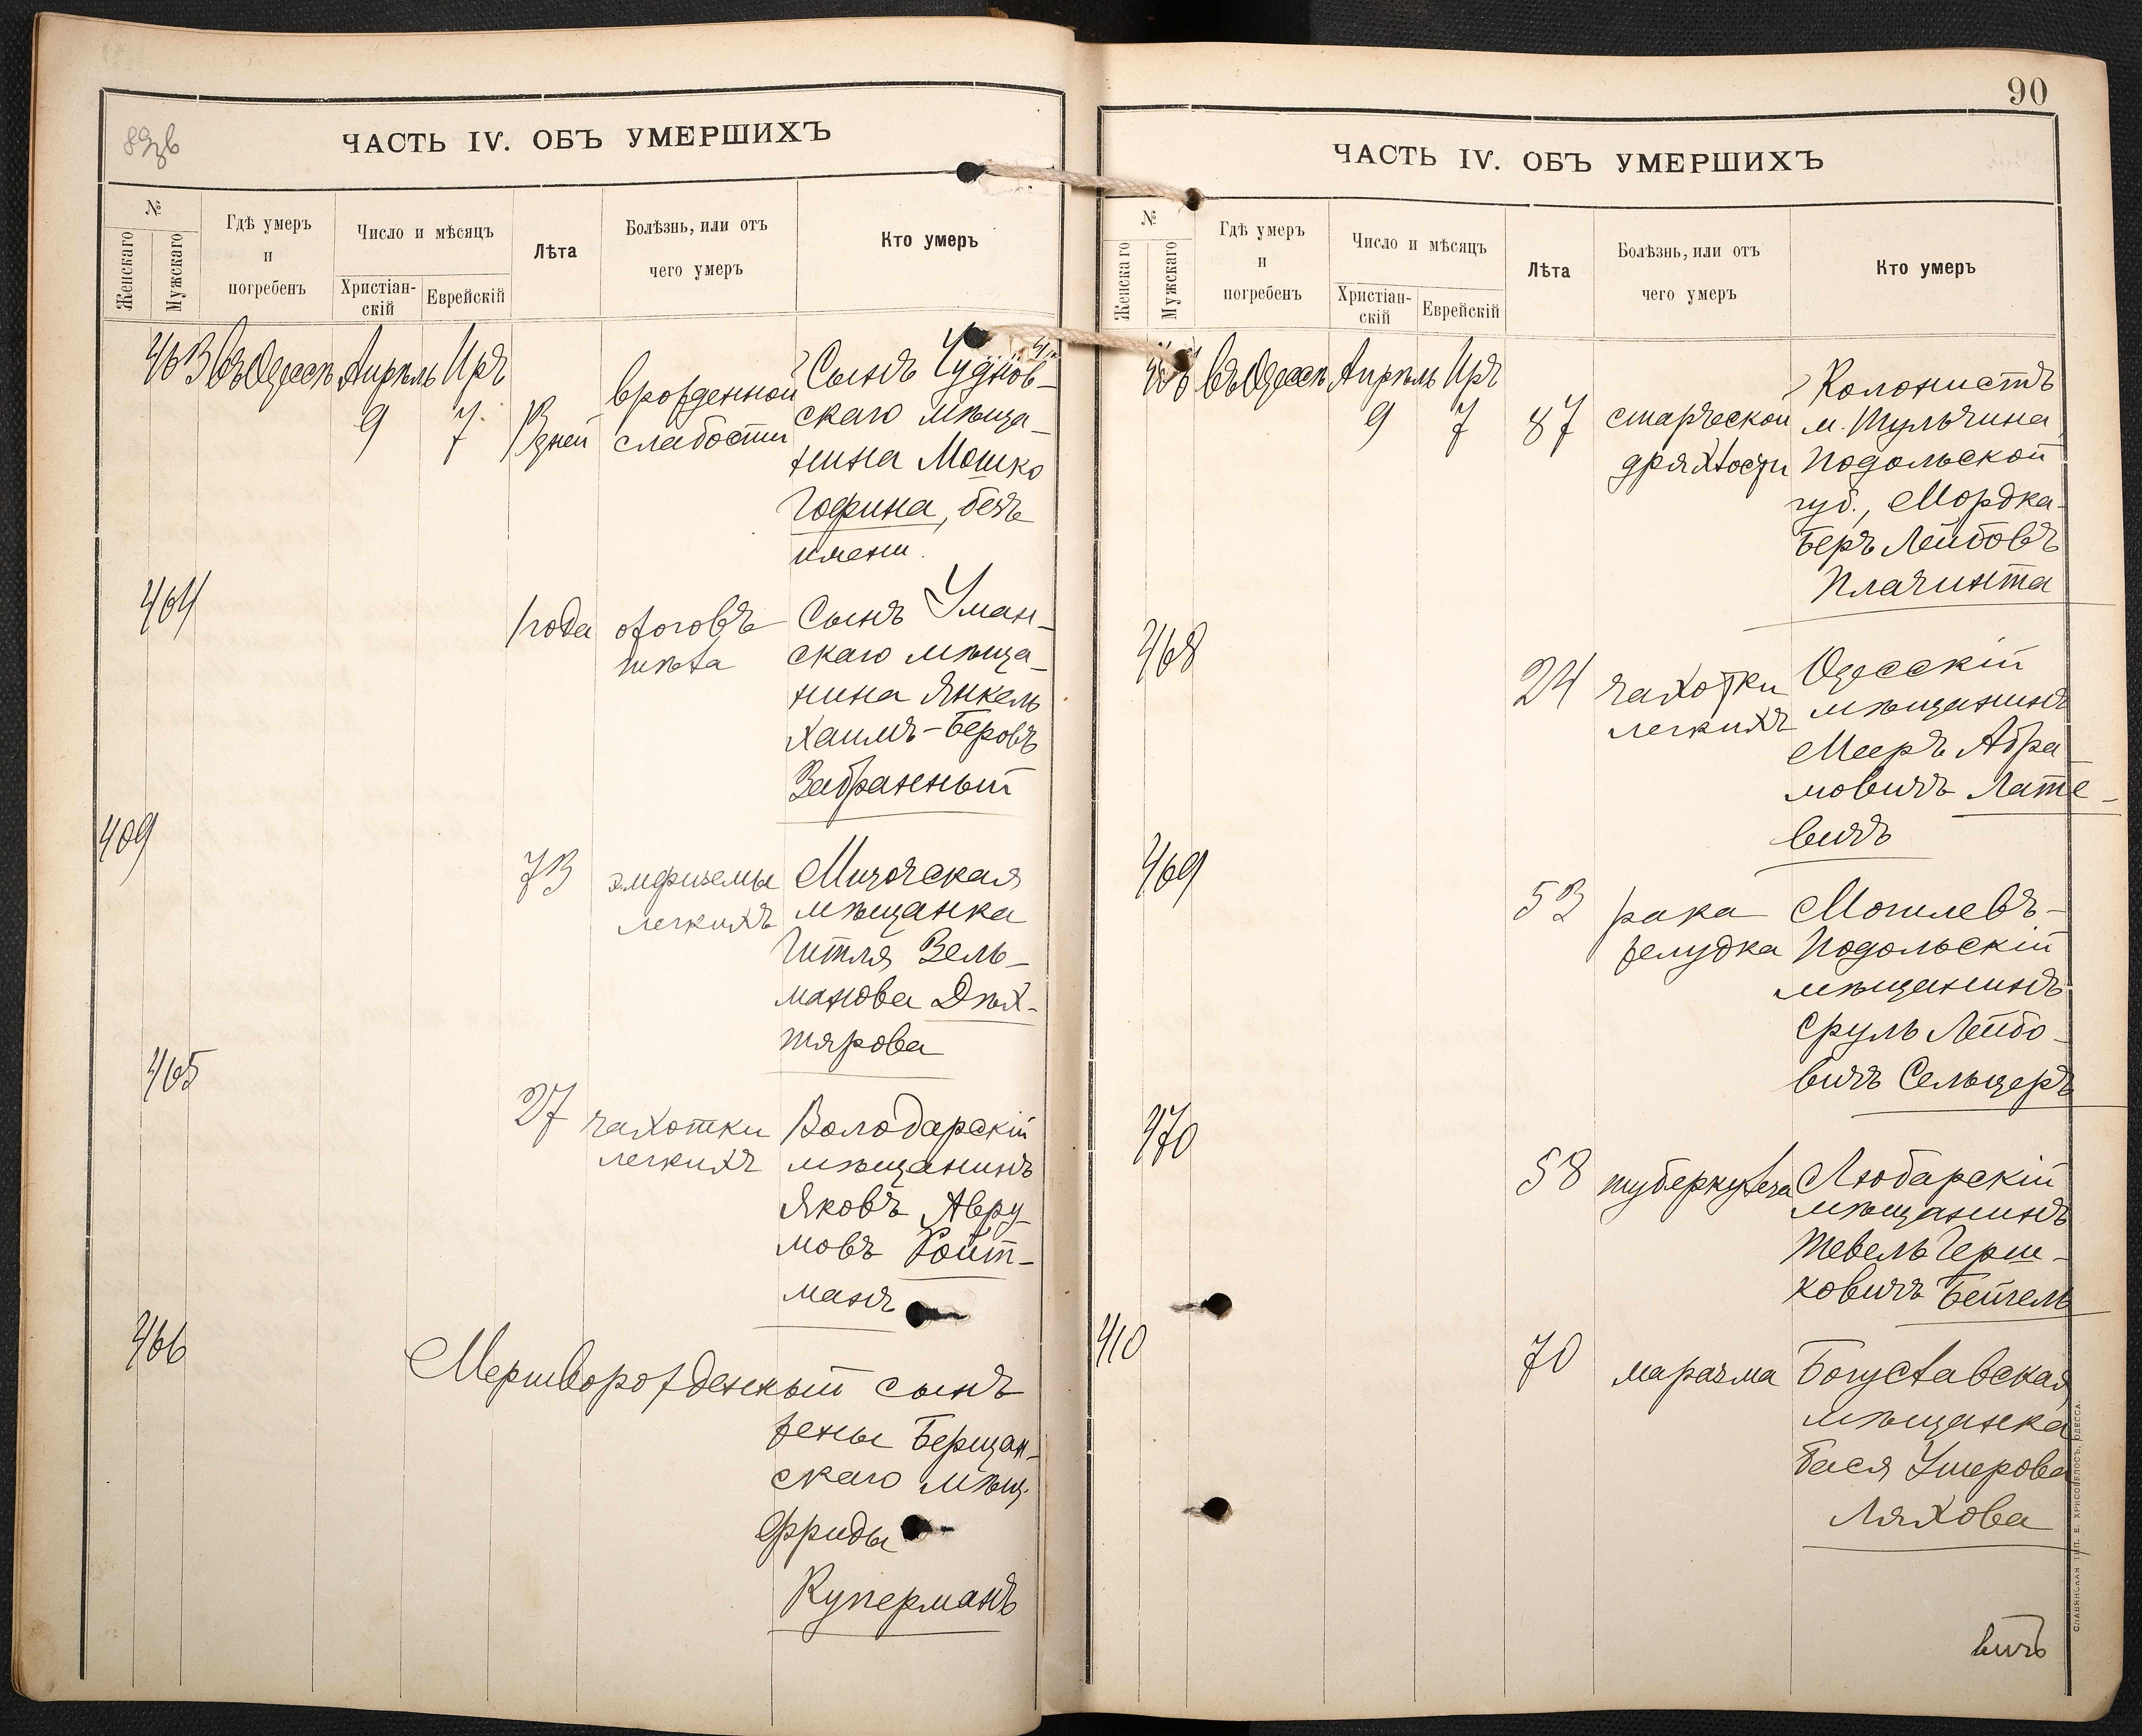 89зв
ЧАСТЬ IV. ОБЪ УМЕРШИХЪ
№
Женскаго
Мужскаго
Гдѣ умеръ
и
погребенъ
Число и мѣсяцъ
Христіан-
скій
Еврейскій
Лѣта
Болѣзнь, или отъ
чего умеръ
Кто умеръ
463 въ Одессѣ Апрѣль Иръ
9 7
13 дней
врожденной
слабости
Сынъ Чуднов-
скаго мѣща-
нина Мошко
Гофина, безъ
имени.
464
1 года
ожоговъ
тѣла
Сынъ Уман-
скаго мѣща-
нина Янкель
Хаимъ-Беровъ
Забранный
409
73
эмфиземы
легкихъ
Мизочская
мѣщанка
Гитля Зель-
манова Дѣх-
тярова
465
27
чахотки
легкихъ
Володарскій
мѣщанинъ
Яковъ Авру-
мовъ Ройт-
манъ
466
Мертворожденный сынъ
жены Берщан-
скаго мѣщ.
Фриды
Куперманъ
90
ЧАСТЬ IV. ОБЪ УМЕРШИХЪ
№
Женскаго
Мужскаго
Гдѣ умеръ
и
погребенъ
Число и мѣсяцъ
Христіан-
скій
Еврейскій
Лѣта
Болѣзнь, или отъ
чего умеръ
Кто умеръ
въ Одессѣ Апрѣль Иръ
9 7
87
старческой
дряхлости
Колонистъ
м. Тульчина,
Подольской
губ., Мордка-
Беръ Лейбовъ
Плачинта
468
24
чахотки
легкихъ
Одесскій
мѣщанинъ
Мееръ Абра-
мовичъ Лате-
вичъ
469
53
рака
желудка
Могилевъ-
Подольскій
мѣщанинъ
Сруль Лейбо-
вичъ Сельцеръ
470
58
туберкулеза
Любарскій
мѣщанинъ
Тевель Герш-
ковичъ Бейгель
410
70
маразма
Богуславская
мѣщанка
Бася Ушерова
Ляхова
вичъ
СЛАВЯНСКАЯ ТИП. Е. ХРИСОГЕЛОСЪ, ОДЕССА.